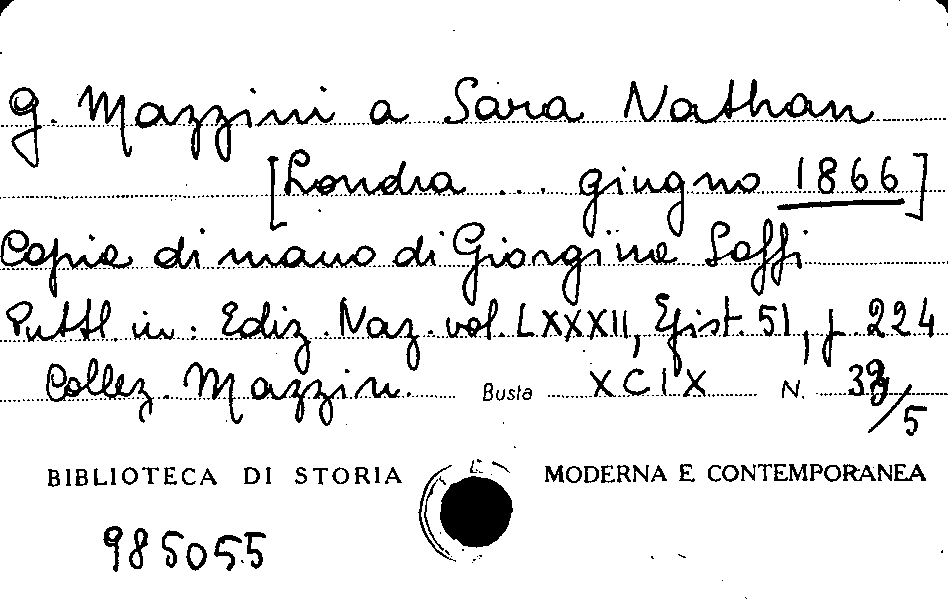 G. Mazzini a Sara Nathan
[Londra ... giugno 1866]
Copia di mano di Giorgina Saffi
Publ. in: Ediz. Naz. vol. LXXXII, Epist. 51, p. 224
Collez. Mazzin. Busta XCIX N. /5
BIBLIOTECA DI STORIA MODERNA E CONTEMPORANEA
985055